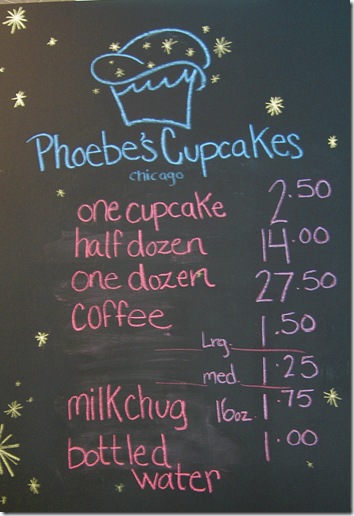 Phoebe's Cupcakes
chicago
one cupcake 2.50
half dozen 14.00
one dozen 27.50
coffee
Lrg. 1.50
med. 1.25
milk chug 16oz. 1.75
bottled 1.00
water